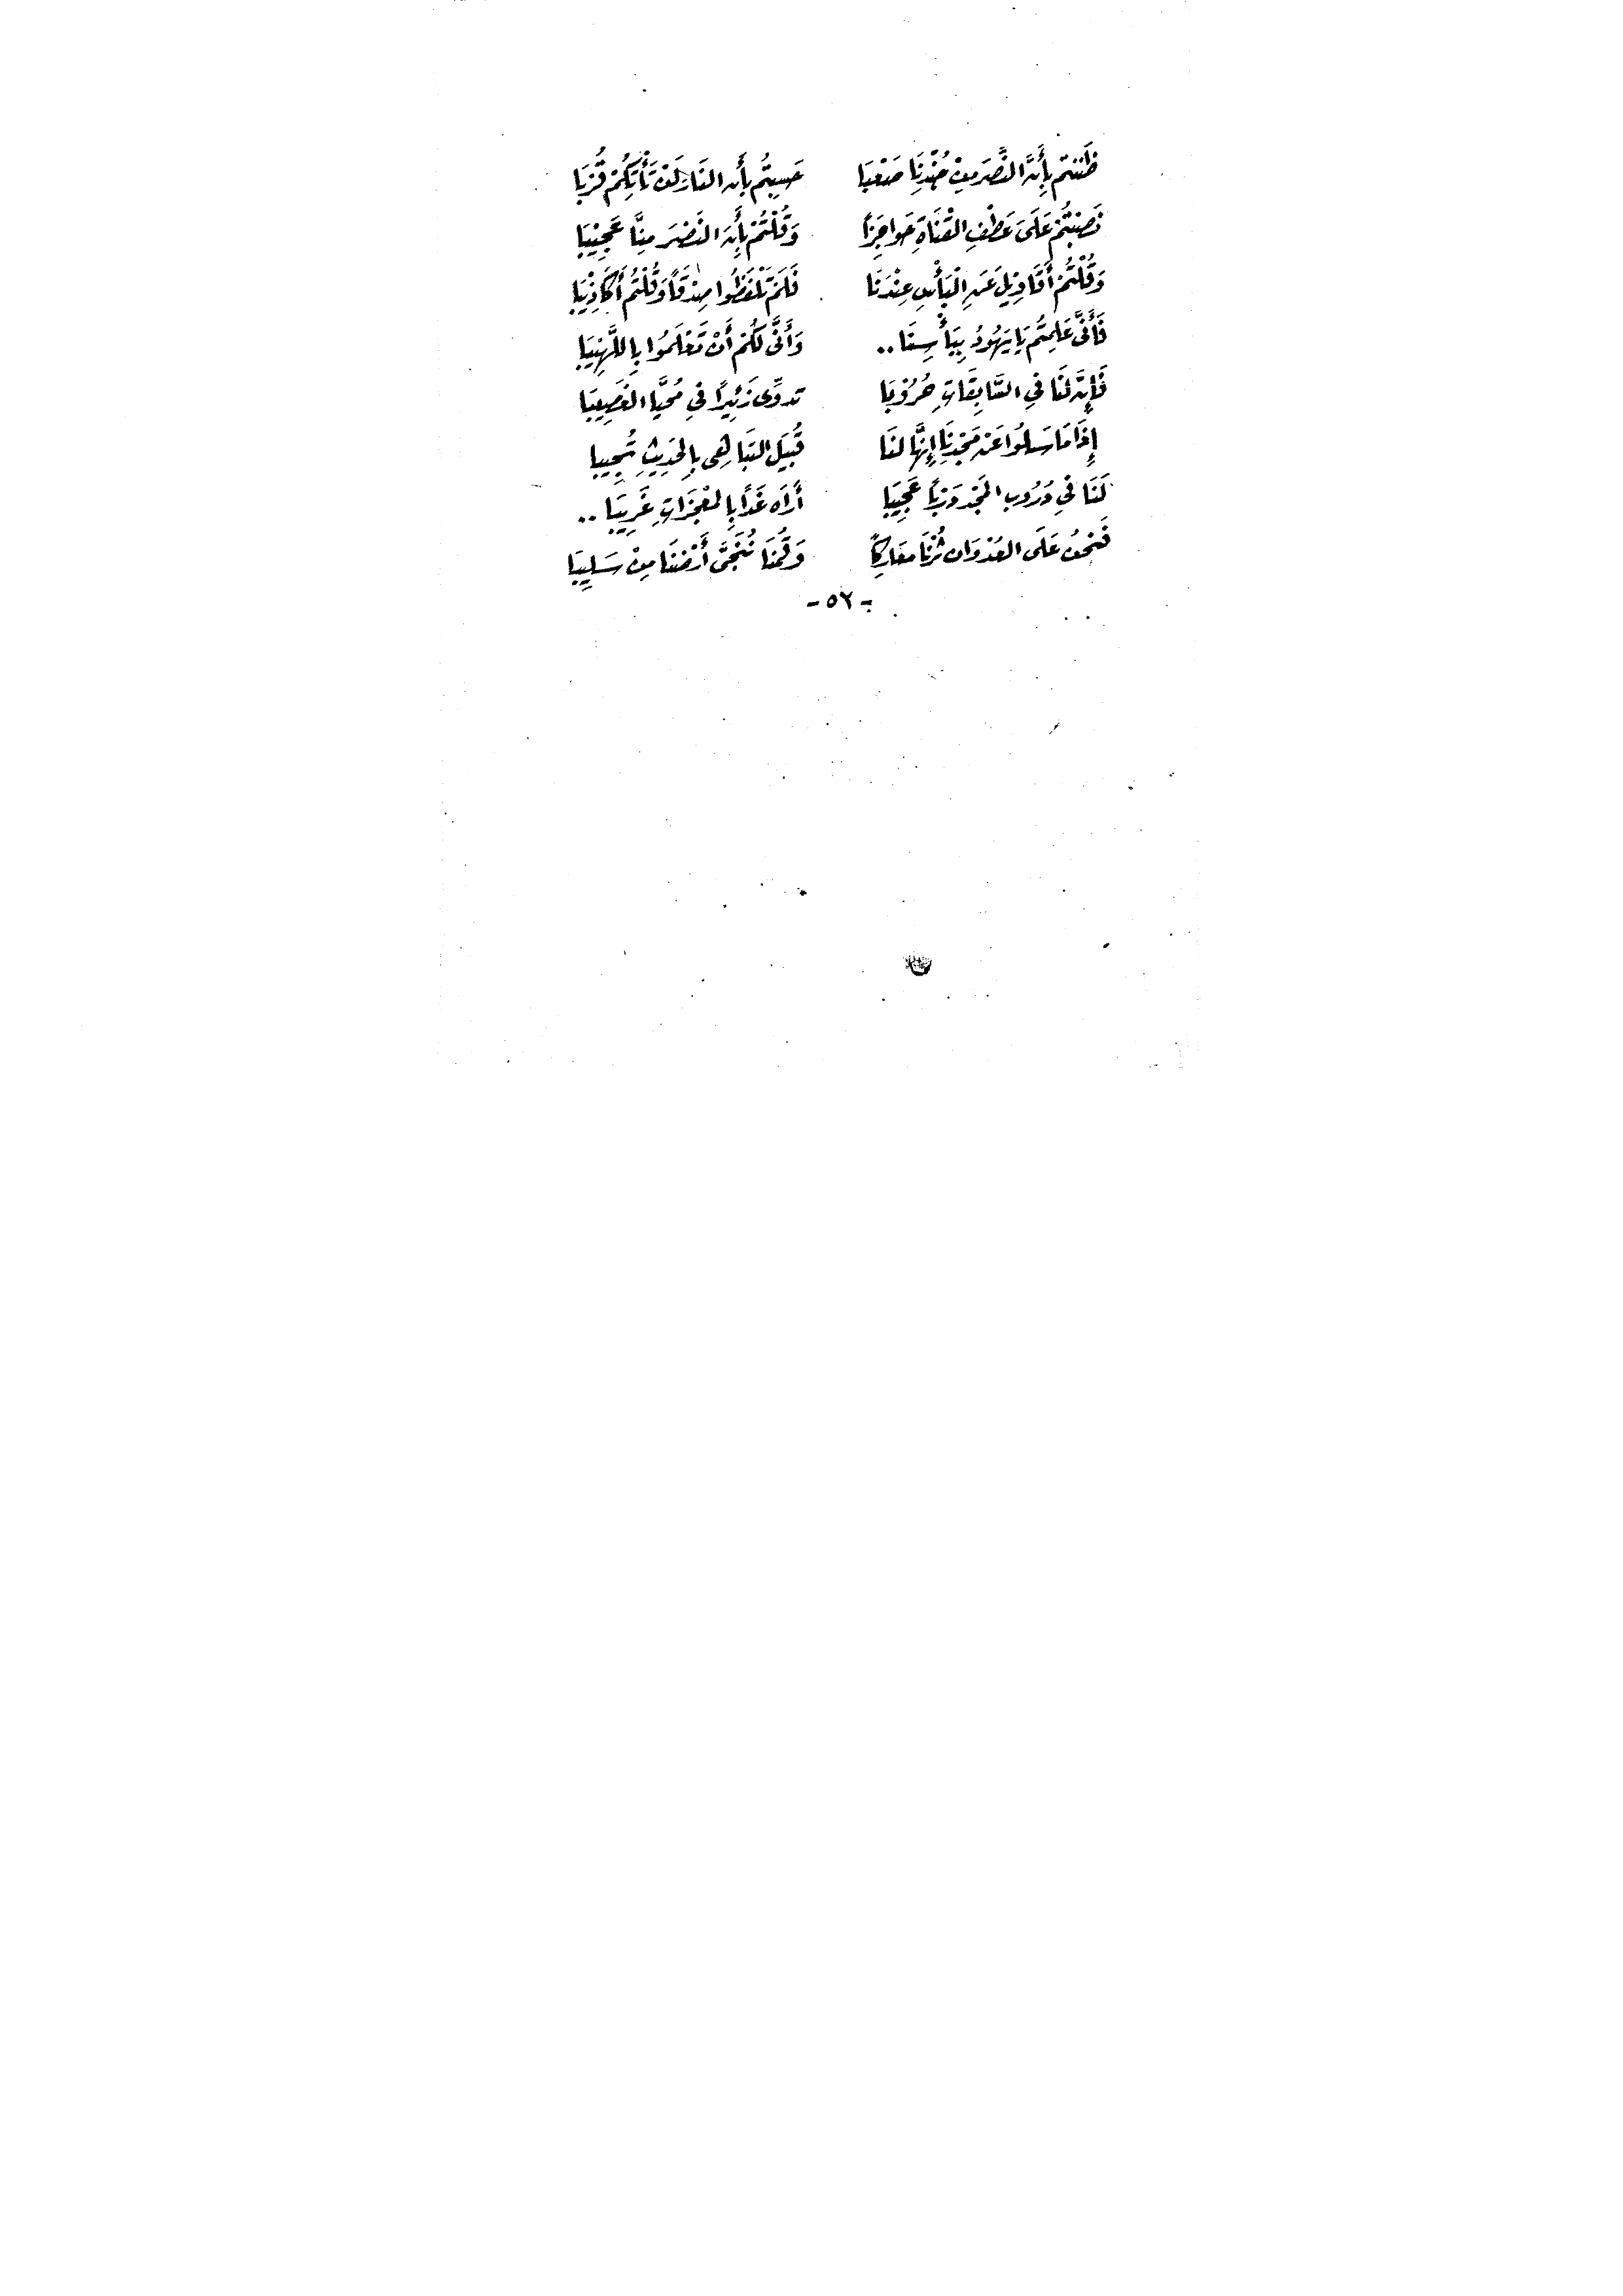 ظَنَنتم بِأَنَّ النَّصْرَ مِنْ جُنْدِنَا صَعْبَا    حَسِبتُم بِأَن النَارَ لَنْ تَأْتِكُمْ قُرْبَا
نَصَبْتُمْ عَلَىَ عَطْفِ القْنَاةِ حَواجِزاً    وَقُلْتُمْ بِأَنَ النَصْرَ مِنَّا عَجِيْبَا
وَقُلْتُمْ أَقَاوِيْلَ عَنِ الْبَأْسِ عِنْدَنَا    فَلَمْ تَلْفَظُوا صِدْقَاً وَقُلْتُم أَكَاذِيْبَا
فَأَنَّى عَلِمتُم يَا يَهُودُ بِبَأْسِنَا ..    وَأَنَّى لَكُمْ أَنْ تَعْلَمُوَا بِاللَّهِيْبَا
فَإِنَّ لنَا فِي السَّابِقَاتِ حُرُوْبَا    تدوِّى زَئِيرًا فِي مُحَيَّا الغَصِيبَا
إِذَا مَا سَلُوَا عَنْ مَجْدِنَا إِنَّهَا لنَا    قُبَيَل التبَاهِى بِالحَدِيثِ تُجِيبا
لَنَا فِي دَرُوبِ المَجْدِ دَرْبًا عَجِيبَا    أَرَاه غَدًا بِالمعْجَزَاتِ غَرِيبَا ..
فَنحنُ عَلَى العُدْوَانِ ثُرْنَا مَعَارِكًا    وَقُمْنَا نُنَجَّى أَرْضَنَا مِنْ سَلِيبَا
- ٥٢ -